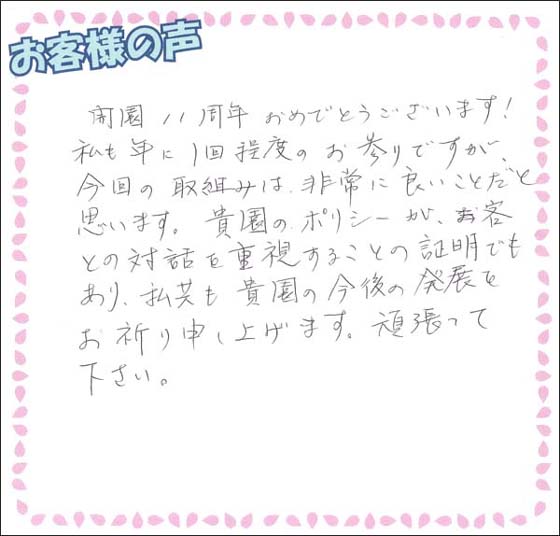 お客様の声
開園11周年おめでとうございます!
私も年に1回程度のお参りですが、
今回の取組みは、非常に良いことだと
思います。貴園のポリシーが、お客
との対話を重視することの証明でも
あり、私共も貴園の今後の発展を
お祈り申し上げます。頑張って
下さい。